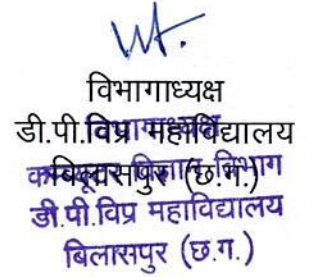 विभागाध्यक्ष
डी.पी.विप्र महाविद्यालय
बिलासपुर (छ.ग.)
विभागाध्यक्ष
कम्प्यूटर विज्ञान विभाग
डी.पी.विप्र महाविद्यालय
बिलासपुर (छ.ग.)